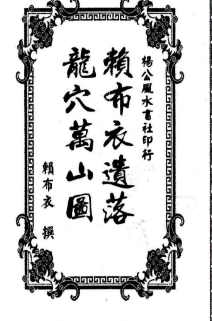 楊公風水書社印行
賴布衣遺落
龍穴萬山圖
賴布衣 撰